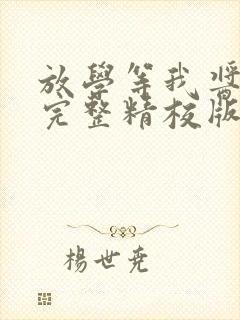 放學等我醬
完整精校版
楊世堯